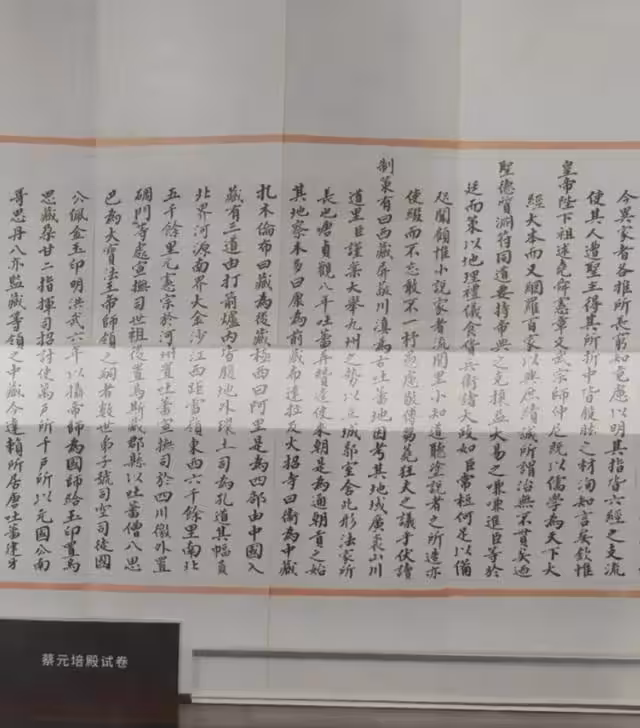 今異家者各推所長窮知究慮以明其指皆六經之支流
使其人遭聖主得其所折中皆股肱之材洵知言矣欽惟
皇帝陛下祖述堯舜憲章文武宗師仲尼既以儒學為天下大
經大本而又網羅百家以興庶績誠所謂治無不貫矣迺
聖德質淵符同道要持帝典之克讓益大易之嗛嗛進臣等於
廷而策以地理禮儀食貨兵衛諸大政如臣常桓何足以備
咫聞顧惟小說家者流閭里小知道聽塗說者之所造亦
使綴而不忘敢不一杼愚慮敬傅芻蕘狂夫之議乎伏讀
制策有曰西藏屏蔽川滇為古吐蕃地因考其地域廣袤山川
道里臣謹案大舉九州之勢以立城郭室舍此形法家所
長也唐貞觀八年吐蕃弄贊遣使來朝是為通朝貢之始
其地察木多曰康為前藏布達拉及大招寺曰衞為中藏
扎木倫布曰藏為後藏極西曰阿里是為四部由中國入
藏有三道由打箭爐內皆腹地外環土司為孔道其幅員
北界河源南界大金沙江西距雪領東西六千餘里南北
五千餘里元憲宗於河州置吐蕃宣撫司於四川徼外置
碉門等處宣撫司世祖復置烏斯藏郡縣以吐蕃僧八思
巴為大寶法王帝師領之嗣者數世弟子號司空司徒國
公佩金玉印明洪武六年以攝帝師為國師給玉印置烏
思藏朵甘二指揮司招討使萬戶所千戶所以元國公南
哥思丹八亦監藏等領之中藏今達賴所居唐吐蕃建牙
蔡元培殿试卷